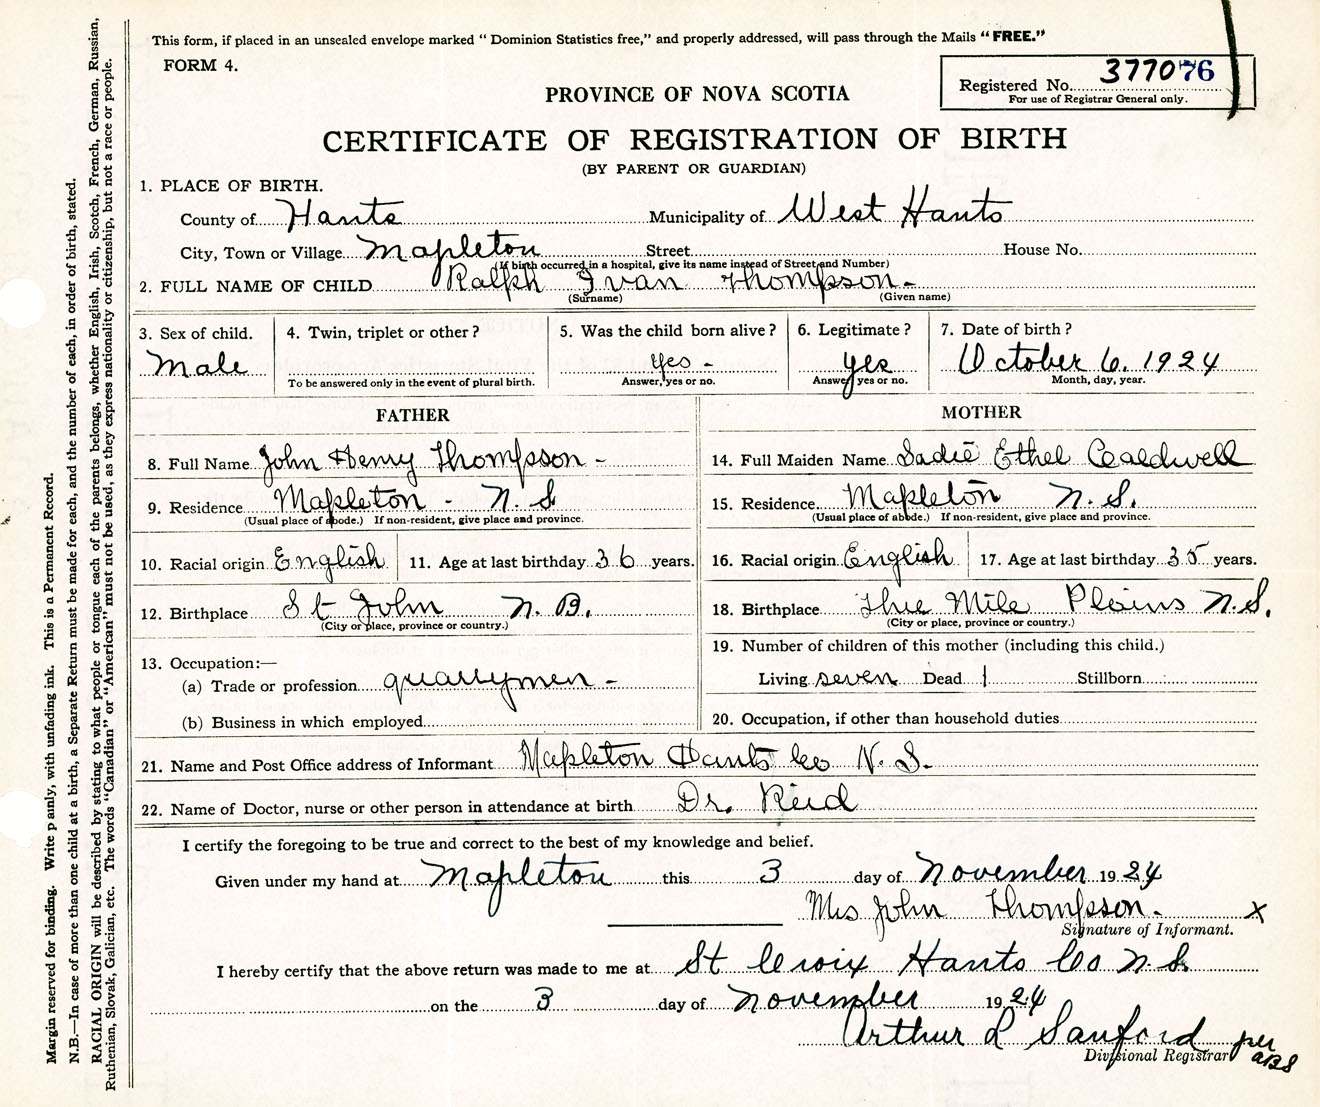 This form, if placed in an unsealed envelope marked "Dominion Statistics free," and properly addressed, will pass through the Mails "FREE."
FORM 4.
Registered No. 377076
For use of Registrar General only.
PROVINCE OF NOVA SCOTIA
CERTIFICATE OF REGISTRATION OF BIRTH
(BY PARENT OR GUARDIAN)
1. PLACE OF BIRTH.
County of Hants Municipality of West Hants
City, Town or Village Mapleton Street House No.
(If birth occurred in a hospital, give its name instead of Street and Number)
2. FULL NAME OF CHILD Ralph Ivan Thompson -
(Surname) (Given name)
3. Sex of child. 4. Twin, triplet or other? 5. Was the child born alive? 6. Legitimate? 7. Date of birth?
Male yes - yes October 6. 1924
To be answered only in the event of plural birth. Answer, yes or no. Answer, yes or no. Month, day, year.
FATHER MOTHER
8. Full Name John Henry Thompson - 14. Full Maiden Name Sadie Ethel Cealdwell
9. Residence Mapleton - N. S. 15. Residence Mapleton N. S.
(Usual place of abode.) If non-resident, give place and province. (Usual place of abode.) If non-resident, give place and province.
10. Racial origin English 11. Age at last birthday 36 years. 16. Racial origin English 17. Age at last birthday 35 years.
12. Birthplace St John N. B. 18. Birthplace Thee Mile Plains N.S.
(City or place, province or country.) (City or place, province or country.)
13. Occupation:— 19. Number of children of this mother (including this child.)
(a) Trade or profession quarrymen - Living seven Dead 1 Stillborn
(b) Business in which employed 20. Occupation, if other than household duties
21. Name and Post Office address of Informant Mapleton Hants Co N. S.
22. Name of Doctor, nurse or other person in attendance at birth Dr. Reid
I certify the foregoing to be true and correct to the best of my knowledge and belief.
Given under my hand at Mapleton this 3 day of November 1924
Mrs John Thompson - X
Signature of Informant.
I hereby certify that the above return was made to me at St Croix Hants Co N.S.
on the 3 day of November 1924
Arthur L Sanford per
Divisional Registrar aBS
Margin reserved for binding. Write plaunly, with unfading ink. This is a Permanent Record.
N.B.—In case of more than one child at a birth, a Separate Return must be made for each, and the number of each, in order of birth, stated.
RACIAL ORIGIN will be described by stating to what people or tongue each of the parents belongs, whether English, Irish, Scotch, French, German, Russian,
Ruthenian, Slovak, Galician, etc. The words "Canadian" or "American" must not be used, as they express nationality or citizenship, but not a race or people.